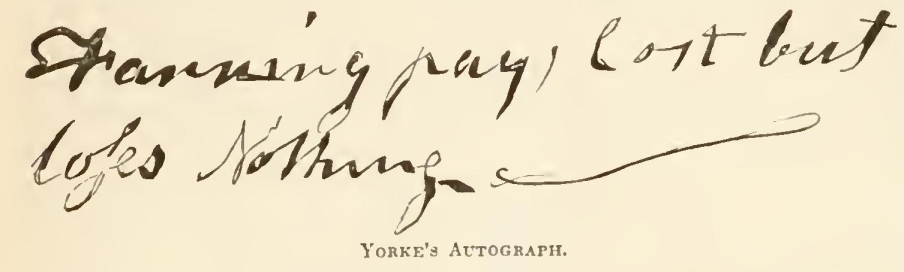 Fanning pays Cost but
loſes Nothing
YORKE'S AUTOGRAPH.